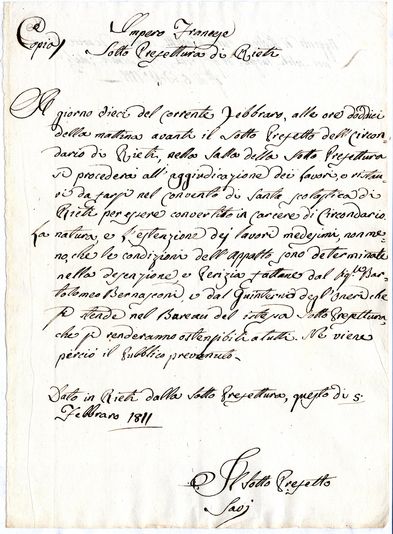 Copia
Impero Francese
Sotto Prefettura di Rieti
Il giorno dieci del corrente Febbraro, alle ore dodici
della mattina avanti il Sotto Prefetto dell'Circon-
dario di Rieti, nella Salla della Sotto Prefettura
si procederà all'aggiudicazione dei lavori, o ristau-
ri da farsi nel convento di Santa Scolastica di
Rieti per essere convertito in carcere di Circondario.
La natura, e l'estenzione dei lavori medesimi, non me-
no, che le condizioni dell'appalto sono determinate
nella descrizione e Perizia fattane dal Sig.r Bar-
tolomeo Bernasconi, e dal degl'Oneri che
si stende nel Bureau del Sotto Prefettura,
che si renderanno ostensibili a tutti. Ne viene
perciò il Pubblico prevenuto.
Dato in Rieti dalla Sotto Prefettura, questo dì 5
Febbraro 1811
Il Sotto Prefetto